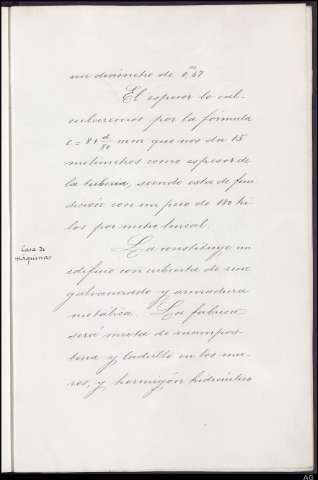 un diámetro de 0,47 m
El espesor lo cal-
cularemos por la fórmula
e = 8 + d/80 mm que nos da 15
milímetros como espesor de
la tubería, siendo esta de fun-
dición con un peso de 180 ki-
los por metro lineal.
Casa de
máquinas
La constituye un
edificio con cubierta de zinc
galvanizado y armadura
metálica. La fábrica
será mixta de mampos-
tería y ladrillo en los mu-
ros, y hormigón hidráulico
AG